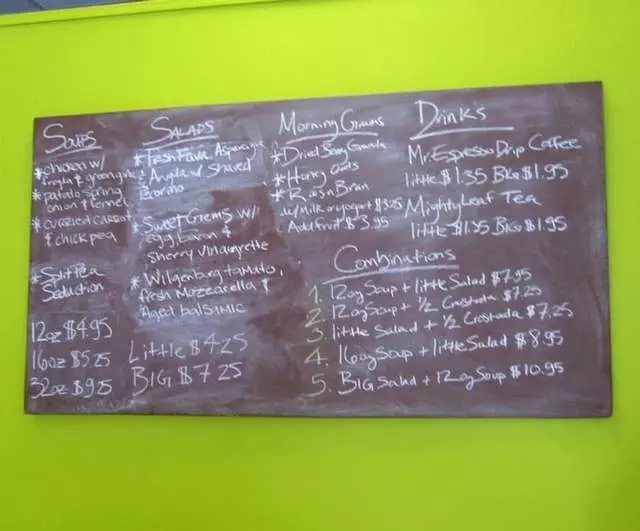 Soups
*chicken w/
*potato spring
onion & fennel
*curried carrot
& chick pea
*Split Pea
Seduction
12oz $4.95
16oz $5.25
32oz $9.25
Salads
*Fresh Fava, Asparagus
& Arugula w/ Shaved
Pecorino
*Sweet Gems w/
egg, Bacon &
sherry Vinaigrette
*Wilgenburg tomato,
fresh Mozzarella &
Aged balsimic
Little $4.25
BIG $7.25
Morning Grains
*Dried Granola
*Honey Oats
*Raisn Bran
w/Milk or yogurt $3.25
Add fruit $3.95
Drinks
Mr.Espresso Drip Coffee
little $1.35 BIG $1.95
MightyLeaf Tea
little $1.35 BIG $1.95
Combinations
1. 12oz Soup + little Salad $7.95
2. 12oz Soup + 1/2 Crostada $7.25
3. little Salad + 1/2 Crostada $7.25
4. 16oz Soup + little Salad $8.95
5. BIG Salad + 12oz Soup $10.95